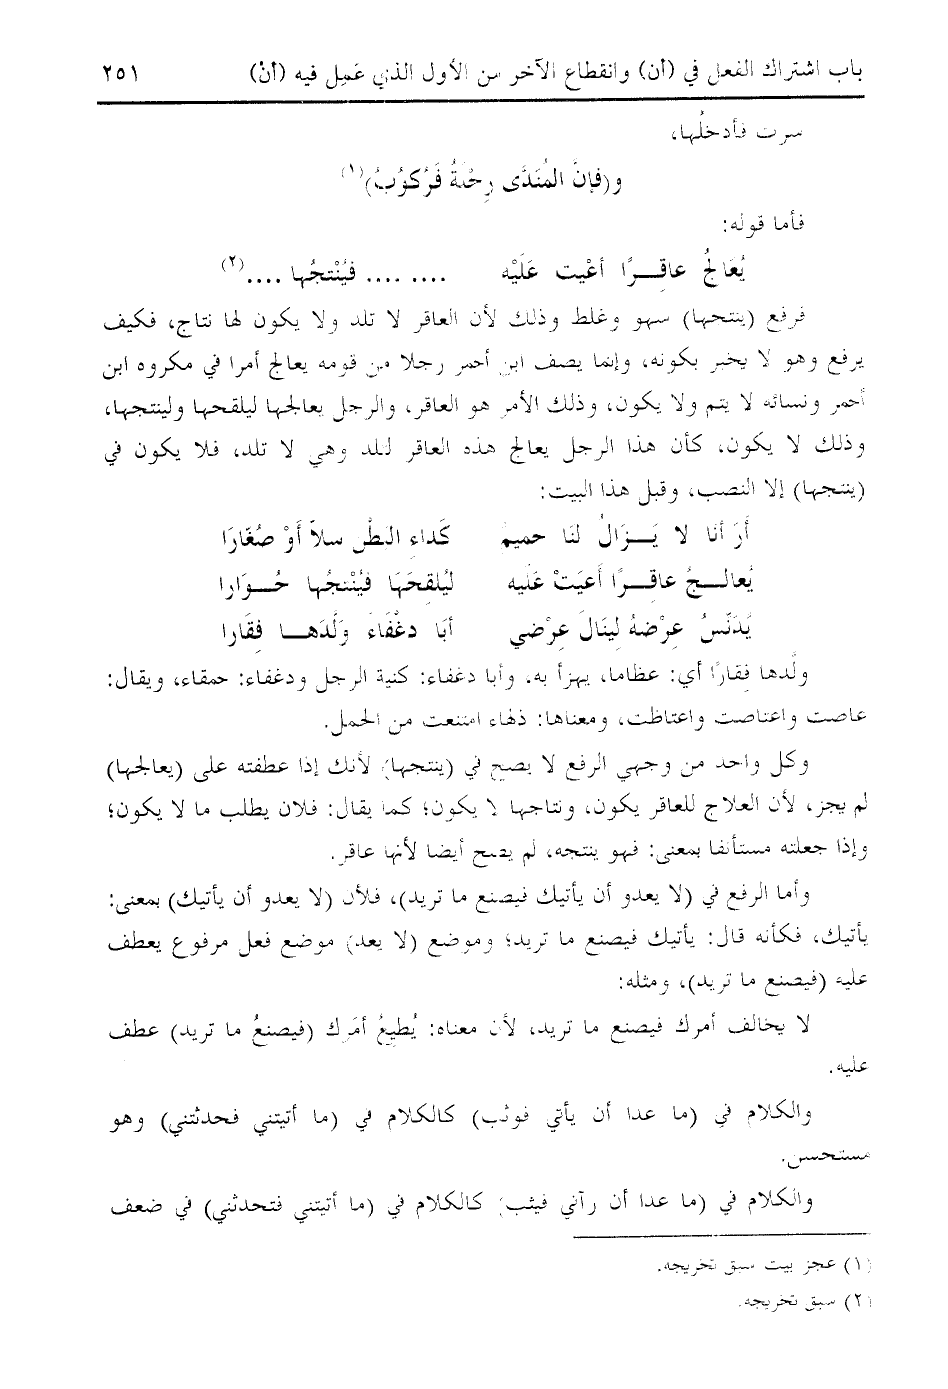 باب اشتراك الفعل في (أن) وانقطاع الآخر من الأول الذي عَمِل فيه (أنْ) ٢٥١
سرت فأدخلُها،
و(فإنَّ المُنَدَّى رِحْلَةٌ فَرُكوُبُ)(١)
فأما قوله:
يُعَالجُ عاقـــرًا أعْيت عَلَيْه .... .... فيُنْتجُها ....(٢)
فرفع (ينتجها) سهو وغلط وذلك لأن العاقر لا تلد ولا يكون لها نتاج، فكيف
يرفع وهو لا يخبر بكونه، وإنما يصف ابن أحمر رجلا من قومه يعالج أمرا في مكروه ابن
أحمر ونسائه لا يتم ولا يكون، وذلك الأمر هو العاقر، والرجل يعالجها ليلقحها ولينتجها،
وذلك لا يكون، كأن هذا الرجل يعالج هذه العاقر لتلد وهي لا تلد، فلا يكون في
(ينتجها) إلا النصب، وقبل هذا البيت:
أرَ أنا لا يَـــزَالُ لنا حميم كَداء البَطْن سلاّ أوْ صُفَارَا
يُعالـــجُ عاقـــرًا أعيَتْ عَلَيه ليُلقحَهَا فيُنْتجُها حُـــوَارا
يُدَنّسُ عِرْضهُ لِينَالَ عِرْضي أبَا دغْفَاءَ وَلّدهـــا فِقَارا
ولّدها فِقارًا أي: عظاما، يهزأ به. وأبا دغفاء: كنية الرجل ودغفاء: حمقاء، ويقال:
عاصت واعتاصت واعتاظت، ومعناها: ذلهاء امتنعت من الحمل.
وكل واحد من وجهي الرفع لا يصح في (ينتجها) لأنك إذا عطفته على (يعالجها)
لم يجز، لأن العلاج للعاقر يكون، ونتاجها لا يكون؛ كما يقال: فلان يطلب ما لا يكون؛
وإذا جعلته مستأنفا بمعنى: فهو ينتجه، لم يصح أيضا لأنها عاقر.
وأما الرفع في (لا يعدو أن يأتيك فيصنع ما تريد)، فلأن (لا يعدو أن يأتيك) بمعنى:
يأتيك، فكأنه قال: يأتيك فيصنع ما تريد؛ وموضع (لا يعد) موضع فعل مرفوع يعطف
عليه (فيصنع ما تريد)، ومثله:
لا يخالف أمرك فيصنع ما تريد، لأن معناه: يُطيعُ أمرَك (فيصنعُ ما تريد) عطف
عليه.
والكلام في (ما عدا أن يأتي فوثب) كالكلام في (ما أتيتني فحدثتني) وهو
مستحسن.
والكلام في (ما عدا أن رآني فيثب) كالكلام في (ما أتيتني فتحدثني) في ضعف
(١) عجز بيت سبق تخريجه.
(٢) سبق تخريجه.